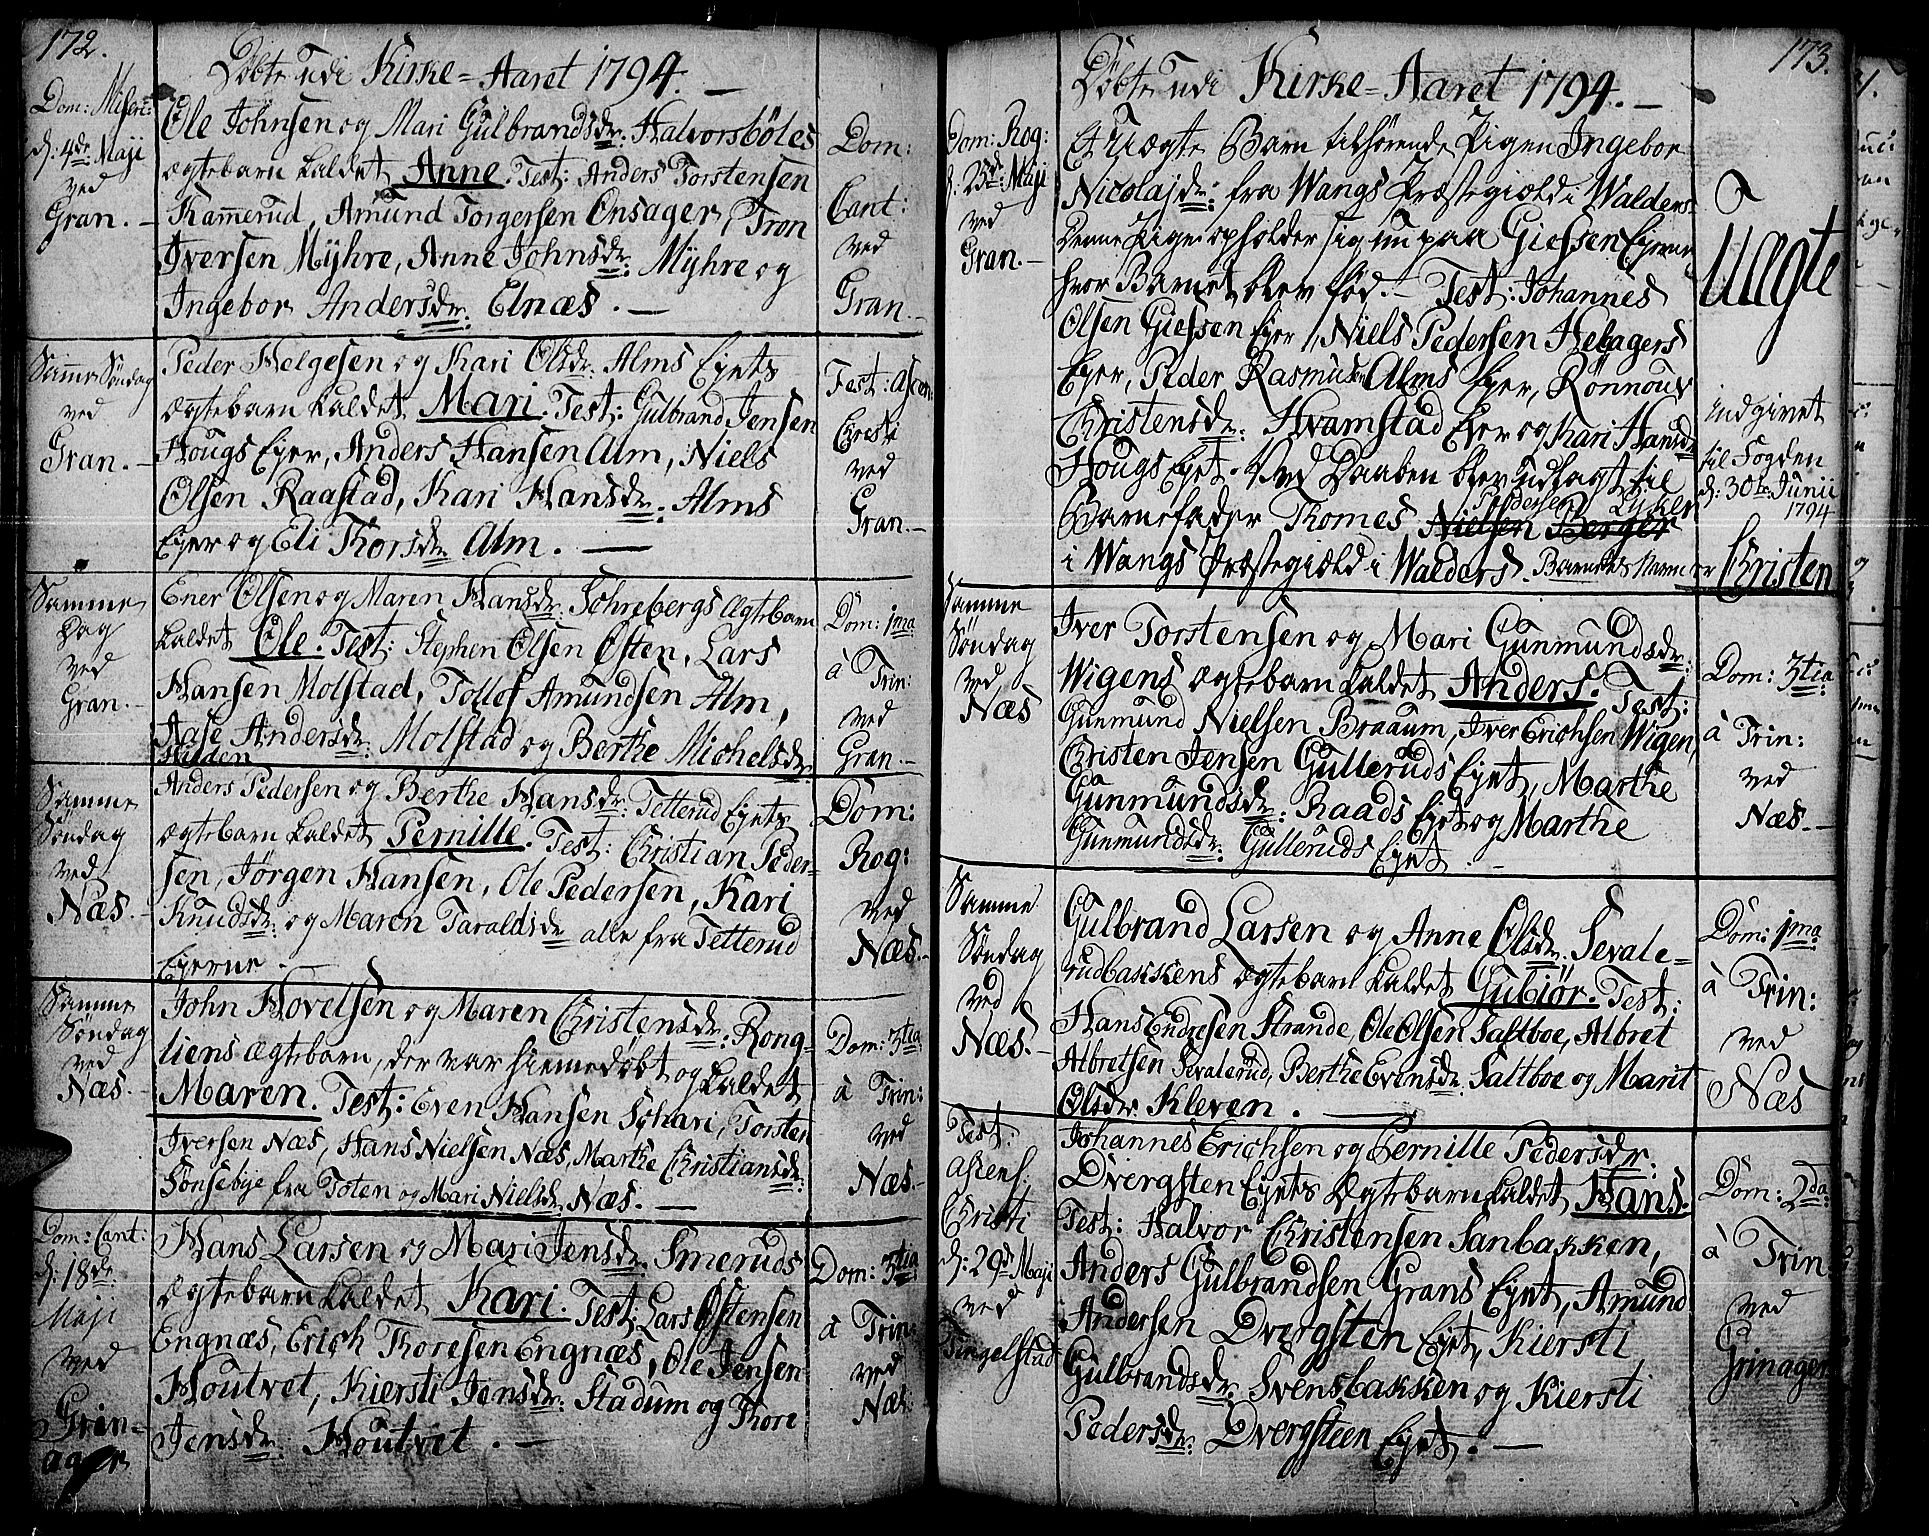 172.
Döbte udi Kirke-Aaret 1794. —
Dom: Miseri:
d: 4de Maji
ved
Gran. —
Ole Johnsen og Mari Gulbrandsdr: Halvorsböles
ægtebarn kaldet Anne. Test: Anders Torstensen
Kamerud, Amund Torgersen Ensager, Tron
Iversen Mÿhre, Anne Johnsdr: Mÿhre og
Ingebor Andersdr: Elnæs. —
Dom:
Cant:
ved
Gran. —
Samme Söndag
ved
Gran. —
Peder Helgesen og Kari Olsdr: Alms Eyets
ægtebarn kaldet Mari. Test: Gulbrand Jensen
Hougs Eyer, Anders Hansen Alm, Niels
Olsen Raastad, Kari Hansdr: Alms
Eyer og Eli Thorsdr: Alm. —
Fest: Ascen:
Christi
ved
Gran. —
Samme
Dag
ved
Gran. —
Ener Olsen og Maren Hansdr: Sohrebergs Ægtebarn
kaldet Ole. Test: Stephen Olsen Östen, Lars
Hansen Molstad, Tollof Amundsen Alm,
Aase Andersdr: Molstad og Berthe Michelsdr:
Hilden
Dom: 1ma
à Trin:
ved
Gran. —
Samme
Söndag
ved
Næs. —
Anders Pedersen og Berthe Hansdr: Tetterud Eyets
ægtebarn kaldet Pernille. Test: Christian Peder-
sen, Jørgen Hansen, Ole Pedersen, Kari
Knudsdr: og Maren Taraldsdr alle fra Tetterud
Eyerne —
Dom:
Rog:
ved
Næs. —
Samme
Söndag
ved
Næs. —
John Hovelsen og Maren Christensdr: Rong-
liens ægtebarn, der var hiemedöbt og kaldet
Maren. Test: Even Hansen Schari, Torsten
Iversen Næs, Hans Nielsen Næs, Marthe Christiansdr:
Sonsebye fra Toten og Mari Nielsdr: Næs. —
Dom: 3tia
à Trin:
ved
Næs. —
Dom: Cant:
d: 18de
Maji
ved
Grin-
ager
Hans Larsen og Mari Jensdr: Smeruds
ægtebarn kaldet Kari. Test: Lars Østensen
Engnæs, Erich Thoresen Engnæs, Ole Jensen
Houtvet, Kiersti Jensdr: Stadum og Thore
Jensdr: Houtvet. —
Dom: 3tia
à Trin:
ved
Næs.
173.
Döbte udi Kirke-Aaret 1794. —
Dom: Rog:
d: 25de Maji
ved
Gran. —
Et Uægte Barn tilhørende Pigen Ingebor
Nicolajdr: fra Wangs Præstegiæld i Walders.
Denne Pige opholder sig nu paa Giefsen Eyerne
hvor Barnet blev fød. — Test: Johannes
Olsen Giefsen Eyer, Niels Pedersen Helagers
Eyer, Peder Rasmusen Alms Eyer, Rönnouv
Christensdr: Hvamstad Eyer og Kari Hansdr
Hougs Eyet. Ved Daaben blev udlagt til
Pedersen Lykken
Barnefader Thomes Nielsen Berger
i Wangs Præstegiæld i Walders. Barnets Navn er Christen
Uægte
indgivet
til Fogden
d: 30te Junii
1794
Samme
Söndag
ved
Næs
Iver Torstensen og Mari Gunmundsdr:
Wigens ægtebarn kaldet Anders. Test:
Gunmund Nielsen Braaum, Iver Erichsen Wigen,
Christen Jensen Gulleruds Eyet, Marthe
Gunmundsdr: Raads Eyet og Marthe
Gunmundsdr: Gulleruds Eyet —
Dom: 3tia
à Trin:
ved
Næs. —
Samme
Söndag
ved
Næs. —
Gulbrand Larsen og Anne Olsdr: Sevale-
rudbakkens ægtebarn kaldet Gubiör. Test:
Hans Endresen Strande, Ole Olsen Saltboe, Albret
Albretsen Sevalerud, Berthe Evensdr: Saltboe og Marit
Olsdr: Kleven. —
Dom: 1ma
à Trin:
ved
Næs
Test:
ascens.
Christi
d: 29de Maji
ved
Tingelstad
Johannes Erichsen og Pernille Pedersdr:
Dvergsten Eyets ægtebarn kaldet Hans.
Test: Halvor Christensen Sanbakken,
Anders Gulbrandsen Grans Eyet, Amund
Andersen Dvergsten Eyet, Kiersti
Gulbrandsdr: Svensbakken og Kiersti
Pedersdr: Dvergsteen Eyet. —
Dom: 2da
à Trin
ved
Grinager